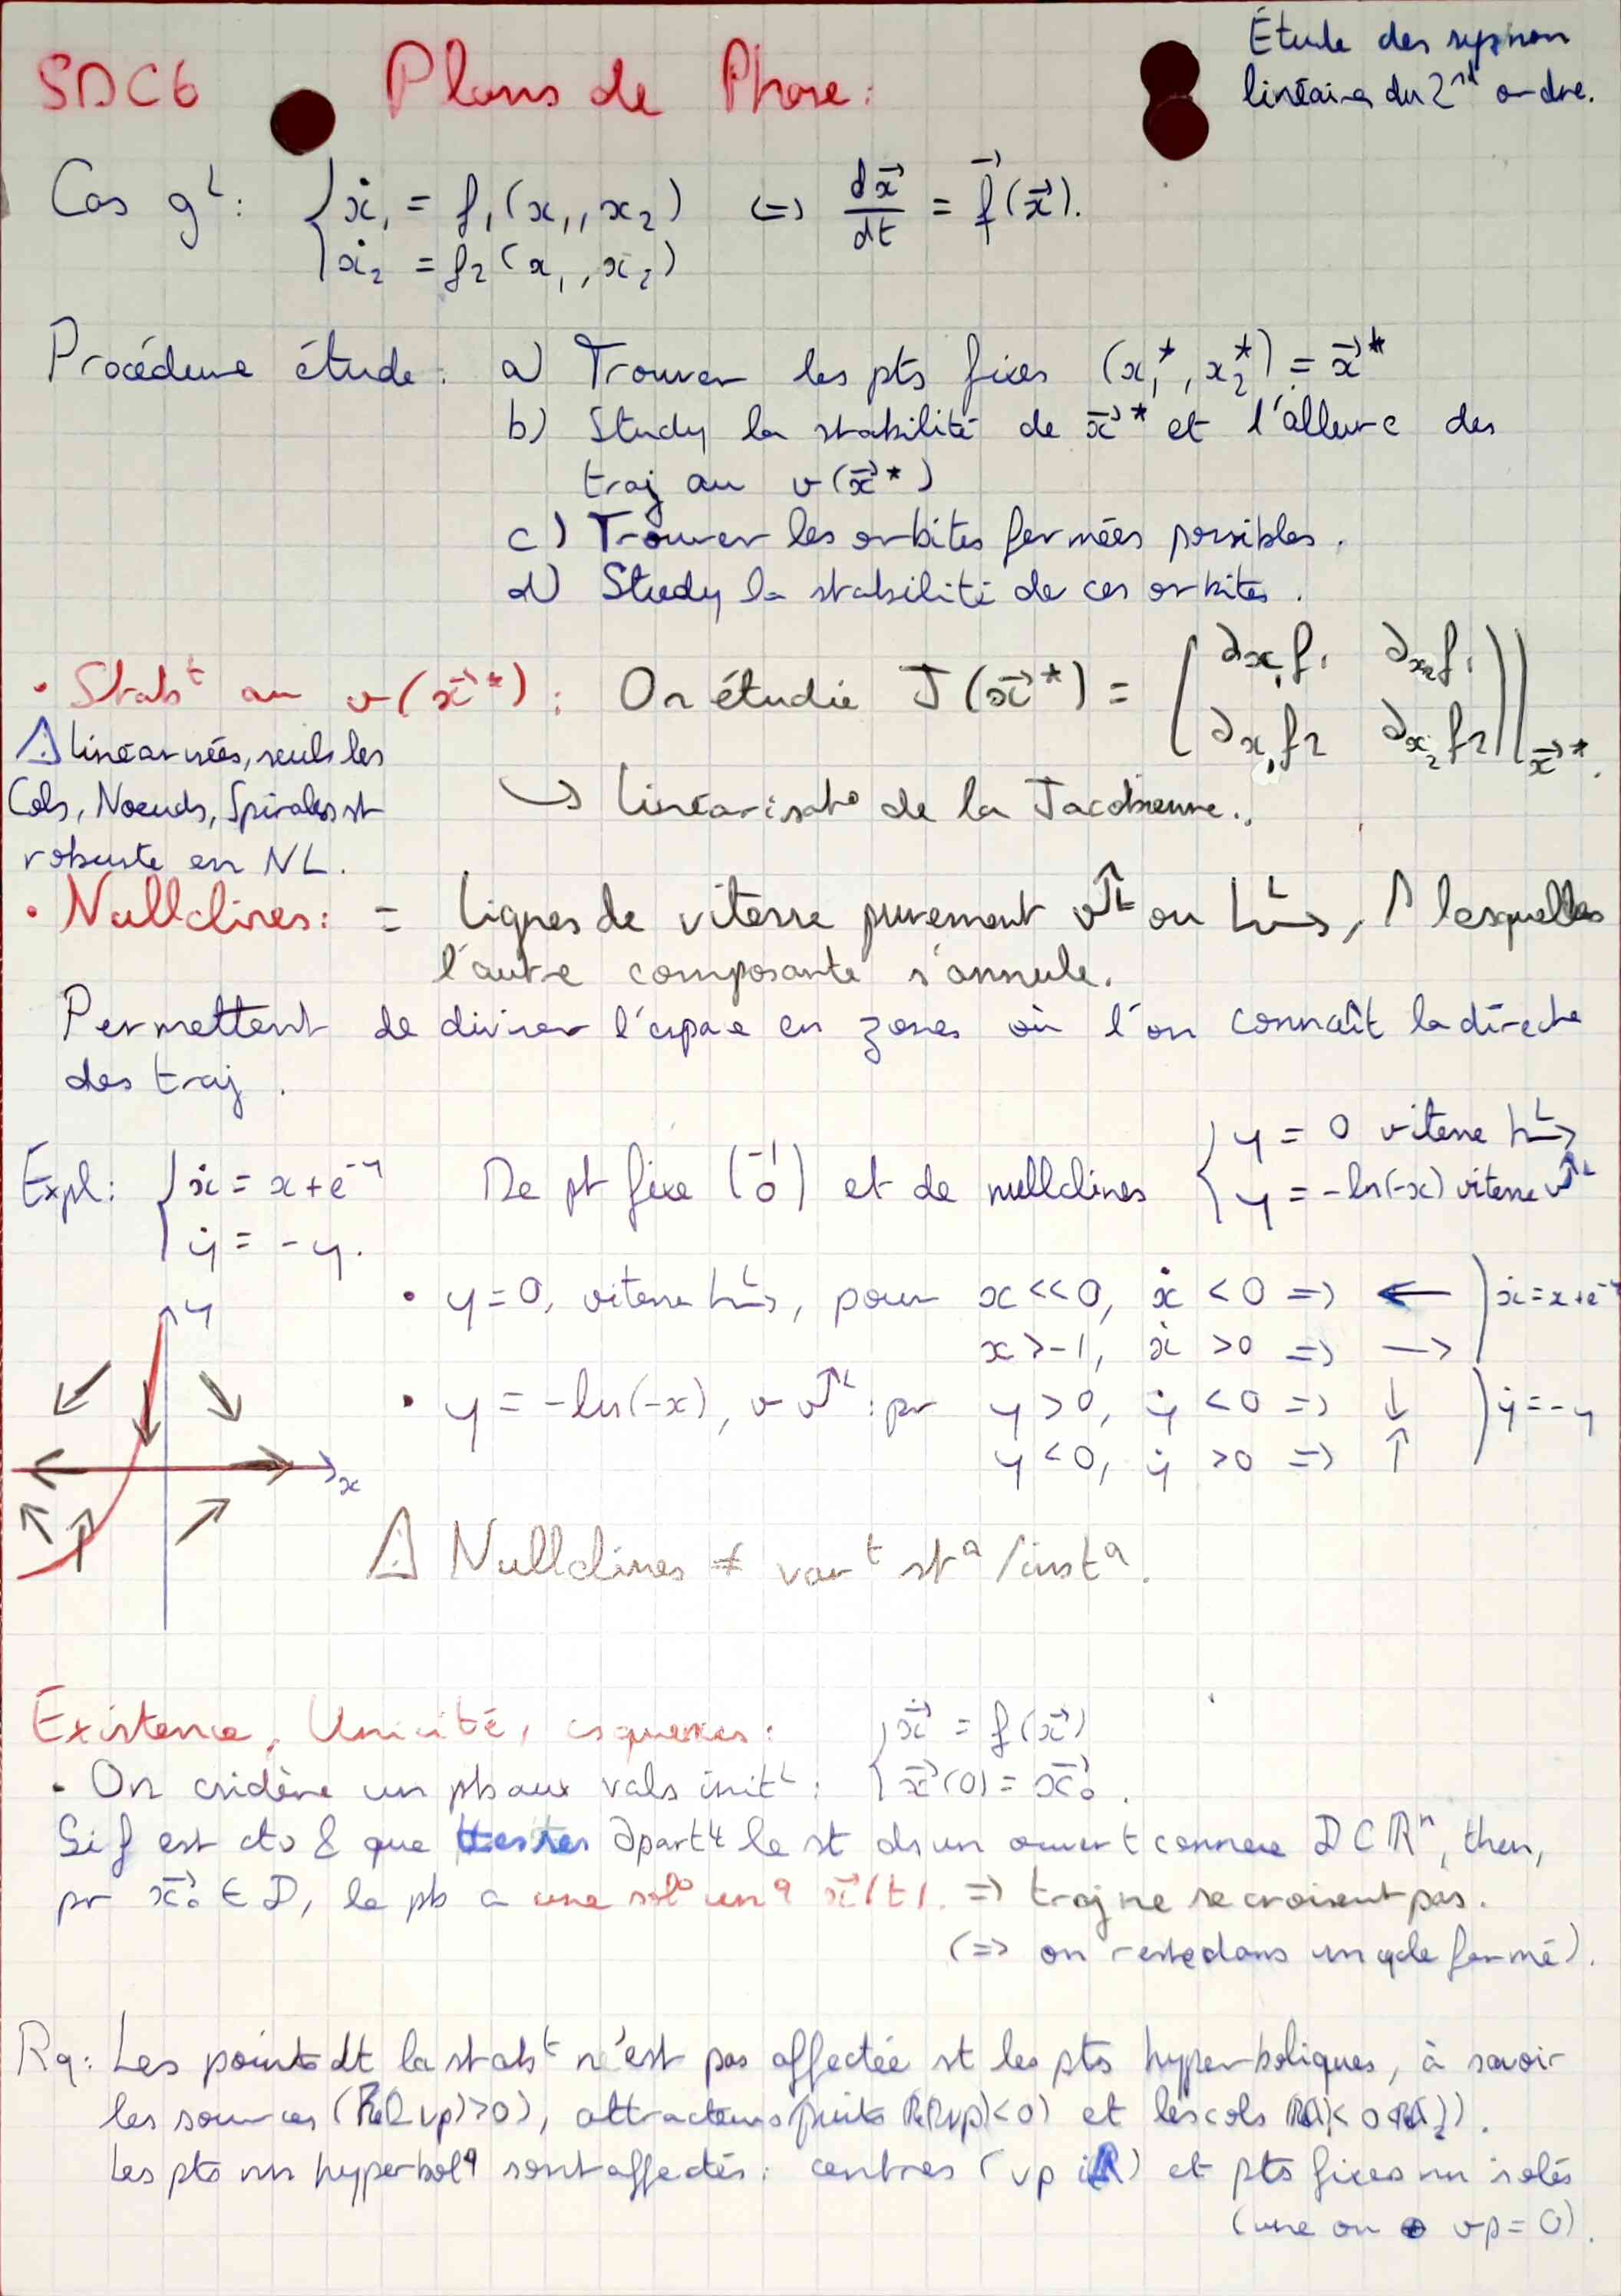 SDC6 Plans de Phase :
Étude des sys non
linéaires du 2nd ordre.
Cas gL : { ẋ1 = f1(x1, x2) <=> dx⃗/dt = f⃗(x⃗).
ẋ2 = f2(x1, x2)
Procédure étude : a) Trouver les pts fixes (x1*, x2*) = x⃗*
b) Study la stabilité de x⃗* et l'allure des
traj au v(x⃗*)
c) Trouver les orbites fermées possibles.
d) Study la stabilité de ces orbites.
• Stabt au v(x⃗*) : On étudie J(x⃗*) = (∂x1f1 ∂x2f1
∂x1f2 ∂x2f2)|x⃗*.
⚠ linéarisées, seuls les
Cols, Noeuds, Spirales st
robuste en NL.
↪ linéarisato de la Jacobienne..
• Nullclines : = lignes de vitesse purement v↑L ou hL→, / lesquelles
l'autre composante s'annule.
Permettent de diviser l'espace en zones où l'on connaît la directo
des traj.
Expl : { ẋ = x + e-y De pt fixe (-1 0) et de nullclines { y = 0 vitesse hL→
ẏ = -y. y = -ln(-x) vitesse v↑L
• y=0, vitesse hL→, pour x<<0, ẋ <0 => ← ) ẋ=x+e-y
x>-1, ẋ >0 => →
• y = -ln(-x), v v↑L : pr y >0, ẏ <0 => ↓ ) ẏ=-y
y <0, ẏ >0 => ↑
y
x
⚠ Nullclines ≠ vart stq/instq.
Existence, Unicité, csquences : { ẋ⃗ = f(x⃗)
• On csidère un pb aux vals initL : x⃗(0) = x⃗0.
Si f est cto & que ttes ses ∂part4 le st ds un ouvert connexe D ⊂ ℝn, then,
pr x⃗0 ∈ D, le pb a une solo unq x⃗(t). => traj ne se croisent pas.
(=> on reste dans un cycle fermé).
Rq : Les points dt la stabt n'est pas affectée st les pts hyperboliques, à savoir
les sources (Re(2 vp)>0), attracteurs/puits Re(2vp)<0) et les cols
Les pts nn hyperbolq sont affectés : centres (vp iℝ) et pts fixes nn isolés
(une ou vp = 0).